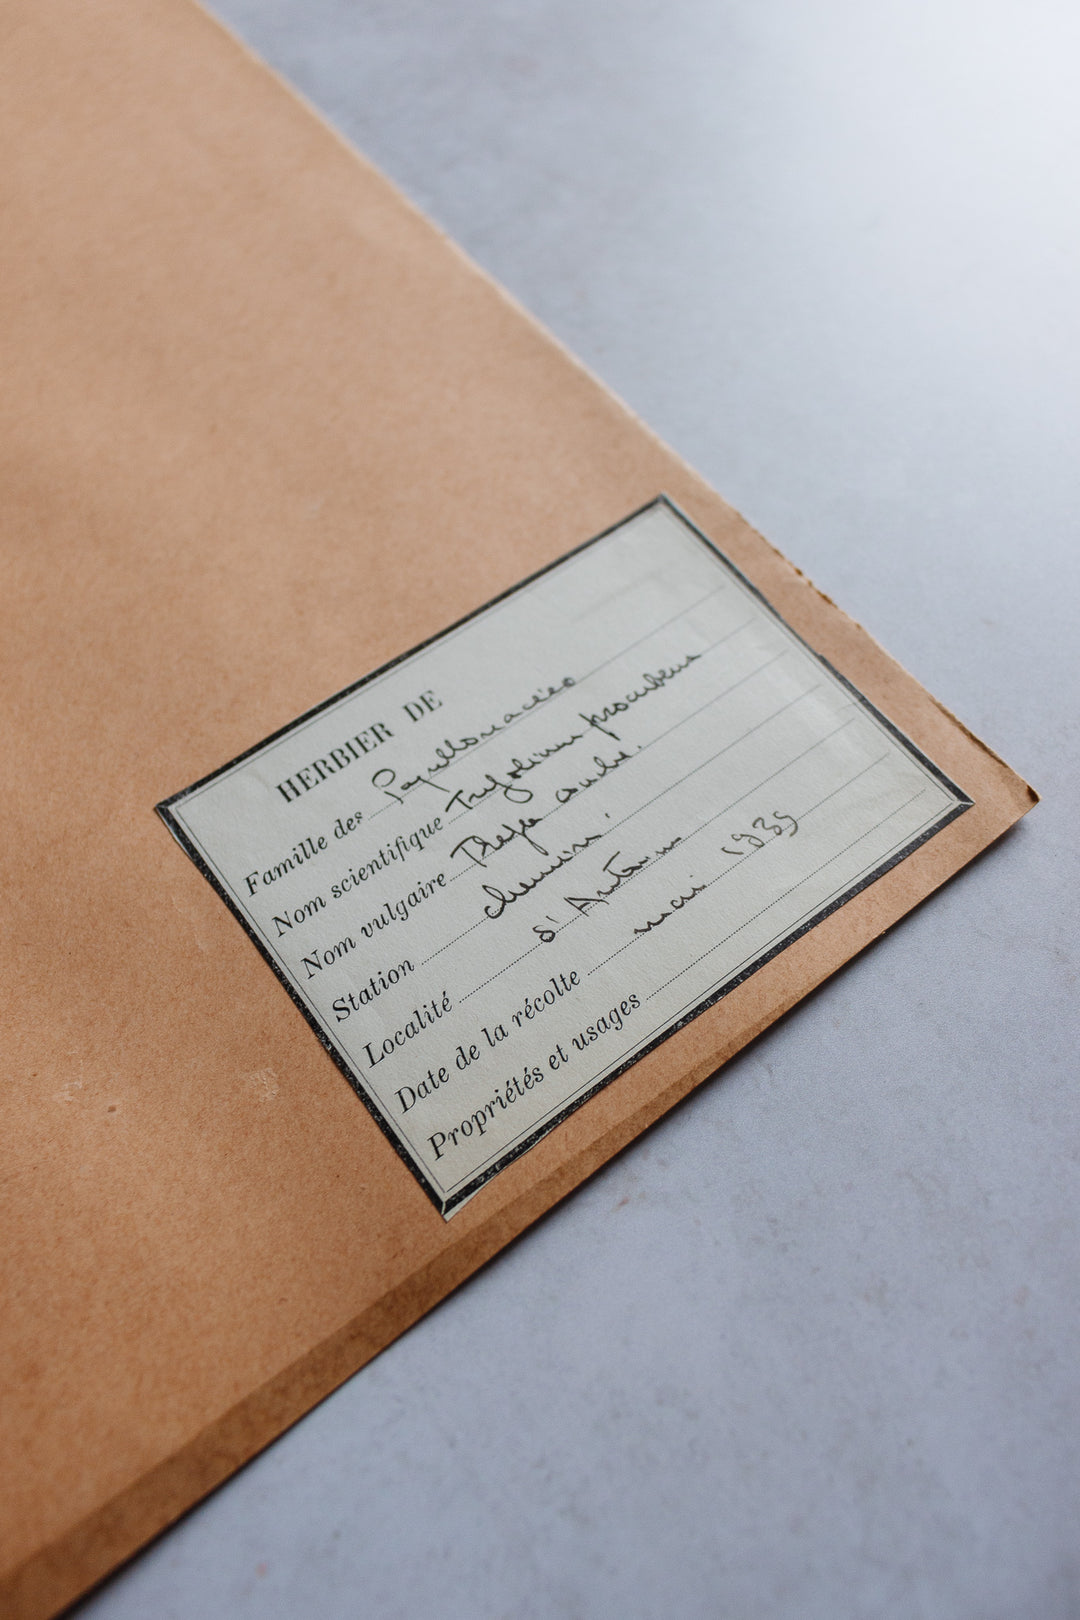 HERBIER DE
Famille des Papillonacées
Nom scientifique Trifolium procubens
Nom vulgaire Trèfle couché.
Station chemins.
Localité St Antonin
Date de la récolte mai 1935
Propriétés et usages